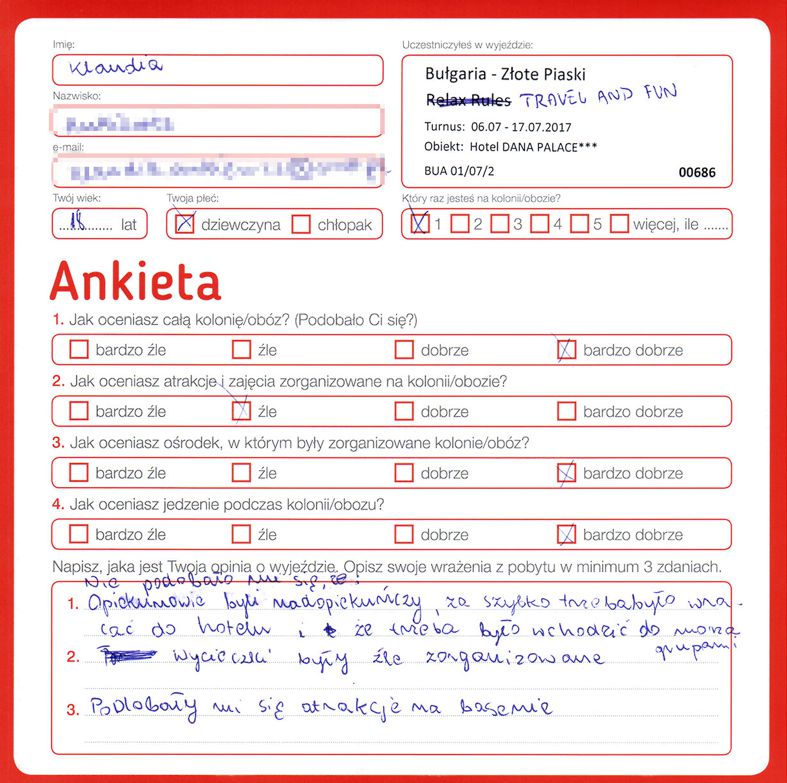 Imię:
Klaudia
Uczestniczyłeś w wyjeździe:
Bułgaria - Złote Piaski
Relax Rules TRAVEL AND FUN
Turnus: 06.07 - 17.07.2017
Obiekt: Hotel DANA PALACE***
BUA 01/07/2 00686
Nazwisko:
e-mail:
Twój wiek:
...18........ lat
Twoja płeć:
dziewczyna chłopak
Który raz jesteś na kolonii/obozie?
1 2 3 4 5 więcej, ile .......
Ankieta
1. Jak oceniasz całą kolonię/obóz? (Podobało Ci się?)
bardzo źle źle dobrze bardzo dobrze
2. Jak oceniasz atrakcje i zajęcia zorganizowane na kolonii/obozie?
bardzo źle źle dobrze bardzo dobrze
3. Jak oceniasz ośrodek, w którym były zorganizowane kolonie/obóz?
bardzo źle źle dobrze bardzo dobrze
4. Jak oceniasz jedzenie podczas kolonii/obozu?
bardzo źle źle dobrze bardzo dobrze
Napisz, jaka jest Twoja opinia o wyjeździe. Opisz swoje wrażenia z pobytu w minimum 3 zdaniach.
Nie podobało mi się, że:
1. Opiekunowie byli nadopiekuńczy, za szybko trzeba było wra-
cać do hotelu i że trzeba było wchodzić do morza
grupami
2. wycieczki były źle zorganizowane
3. Podobały mi się atrakcje na basenie